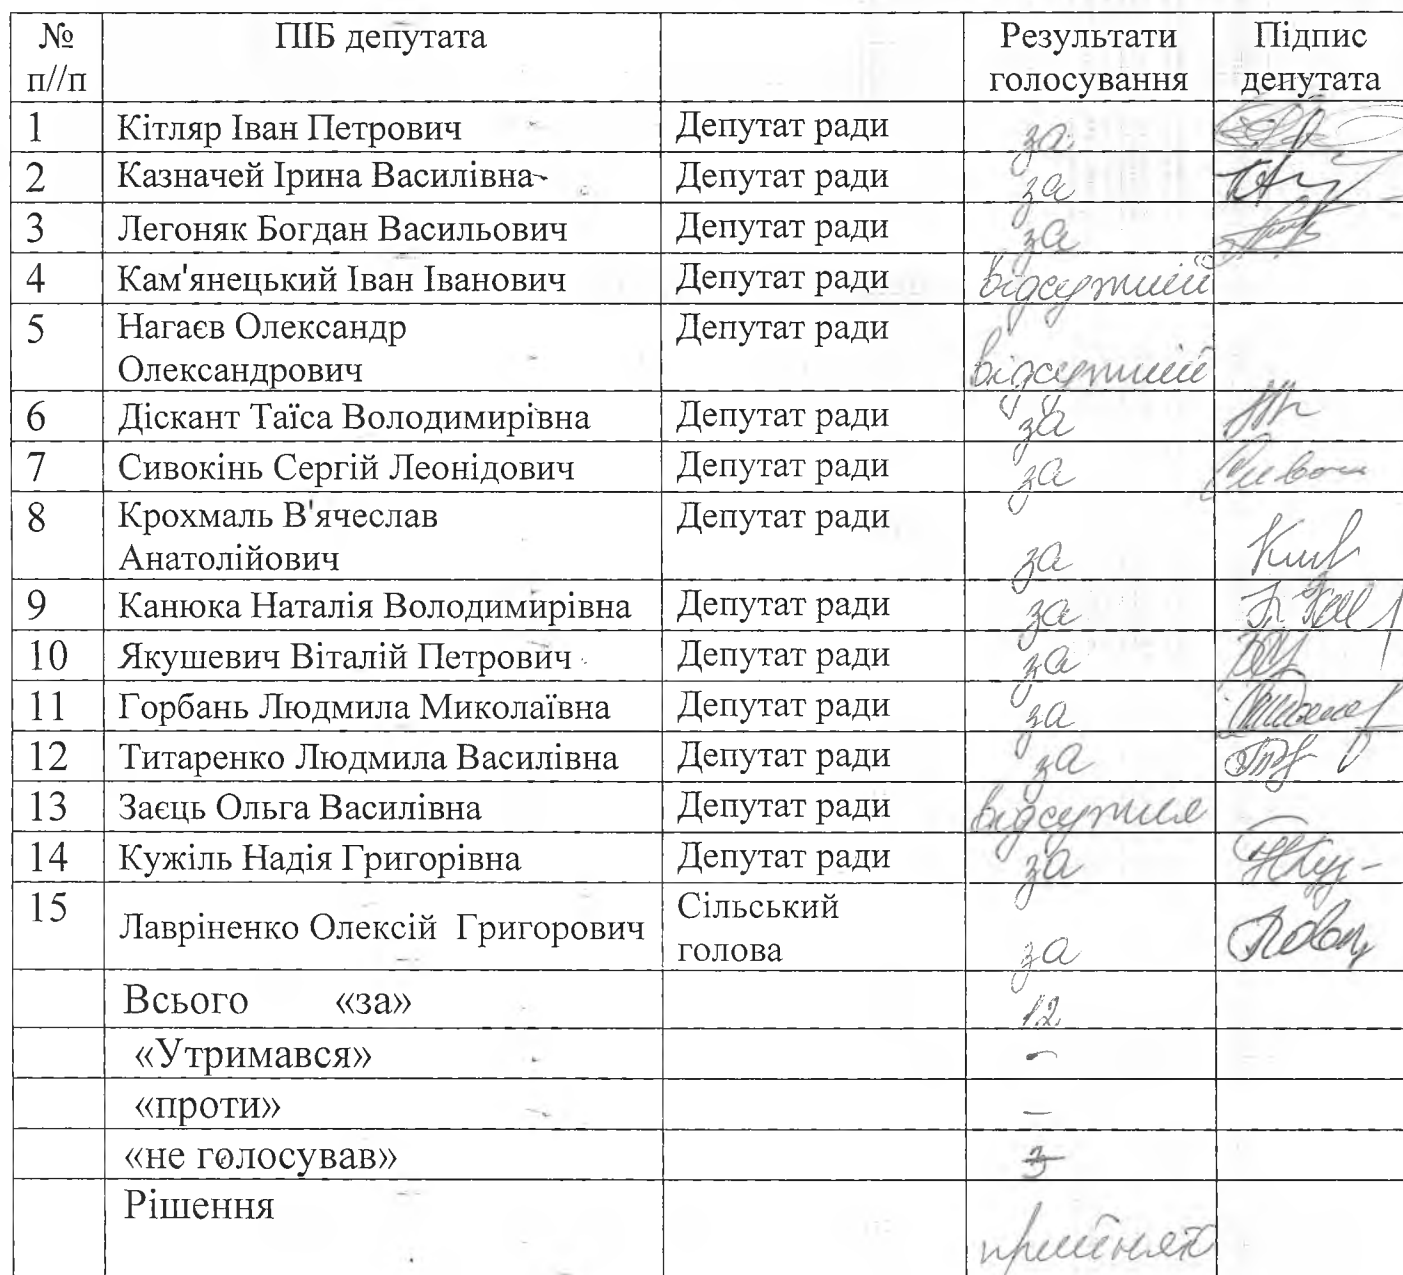 № п//п ПІБ депутата Результати голосування Підпис депутата
1 Кітляр Іван Петрович Депутат ради за
2 Казначей Ірина Василівна Депутат ради за
3 Легоняк Богдан Васильович Депутат ради за
4 Кам'янецький Іван Іванович Депутат ради відсутній
5 Нагаєв Олександр Олександрович Депутат ради відсутній
6 Діскант Таїса Володимирівна Депутат ради за
7 Сивокінь Сергій Леонідович Депутат ради за
8 Крохмаль В'ячеслав Анатолійович Депутат ради за
9 Канюка Наталія Володимирівна Депутат ради за
10 Якушевич Віталій Петрович Депутат ради за
11 Горбань Людмила Миколаївна Депутат ради за
12 Титаренко Людмила Василівна Депутат ради за
13 Заєць Ольга Василівна Депутат ради відсутня
14 Кужіль Надія Григорівна Депутат ради за
15 Лавріненко Олексій Григорович Сільський голова за
Всього «за» 12
«Утримався» -
«проти» -
«не голосував» 3
Рішення прийнято